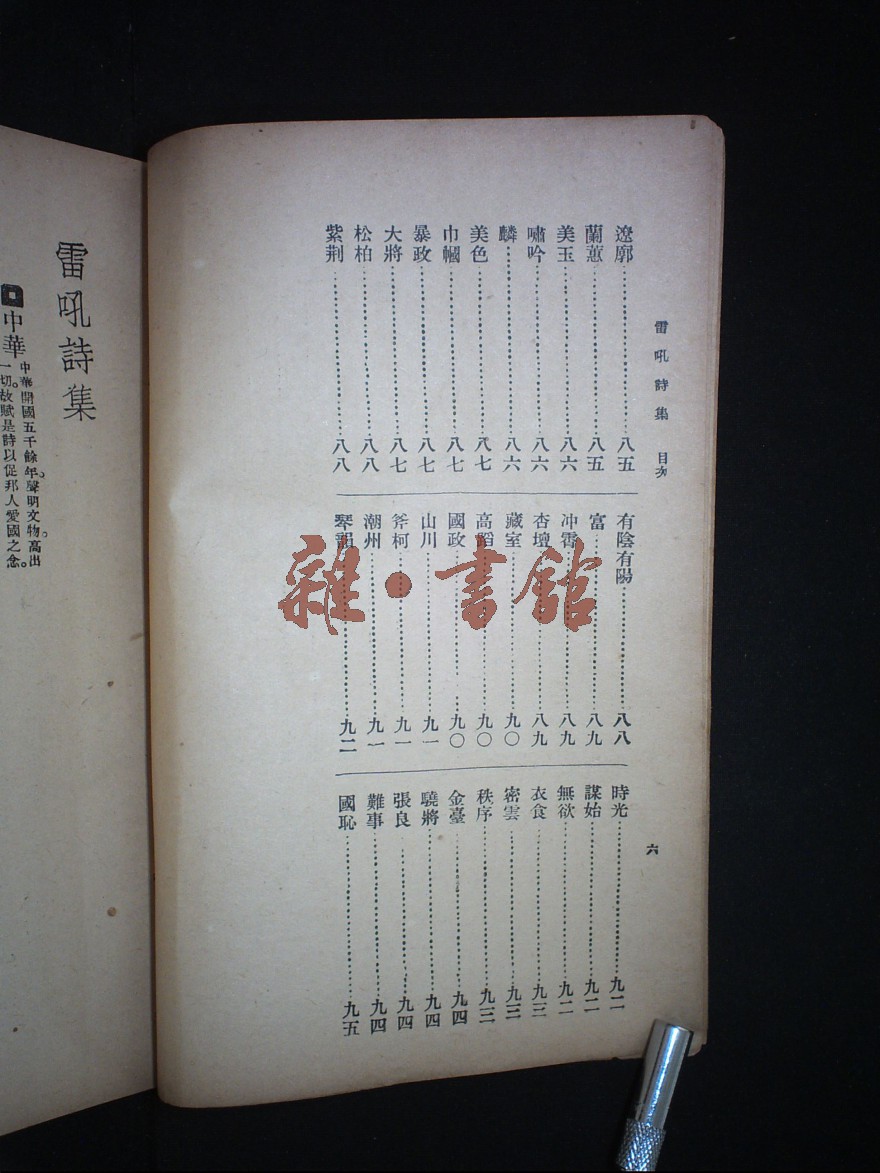 雷吼詩集 目次 六
遼廓……八五
蘭蕙……八五
美玉……八六
嘯吟……八六
麟……八六
美色……八七
巾幗……八七
暴政……八七
大將……八七
松柏……八八
紫荆……八八
有陰有陽……八八
富……八九
冲霄……八九
杏壇……八九
藏室……九〇
高蹈……九〇
國政……九〇
山川……九一
斧柯……九一
潮州……九一
琴韻……九二
時光……九二
謀始……九二
無欲……九二
衣食……九三
密雲……九三
秩序……九三
金臺……九四
驍將……九四
張良……九四
難事……九四
國恥……九五
雷吼詩集
中華
中華開國五千餘年。聲明文物。高出
一切。故賦是詩以促邦人愛國之念。
雜·書館